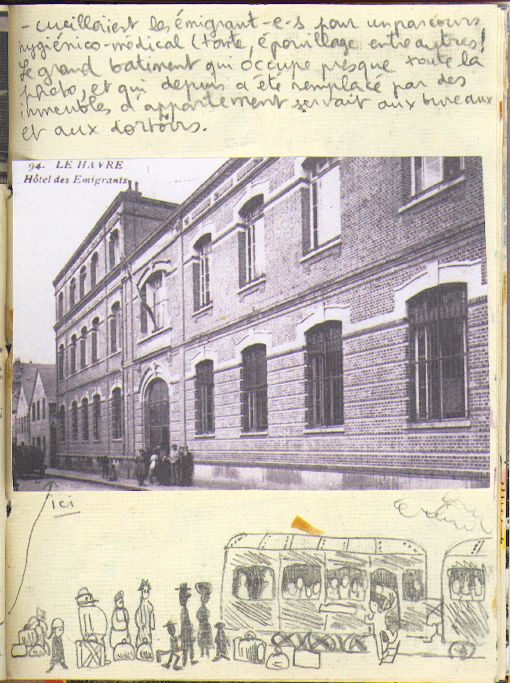 - cueillaient les émigrant-e-s pour un parcours
hygiénico-médical (tonte, épouillage entre autres)
Le grand bâtiment qui occupe presque toute la
photo, et qui depuis a été remplacé par des
immeubles d'appartement servait aux bureaux
et aux dortoirs.
94. LE HAVRE
Hôtel des Emigrants
ici